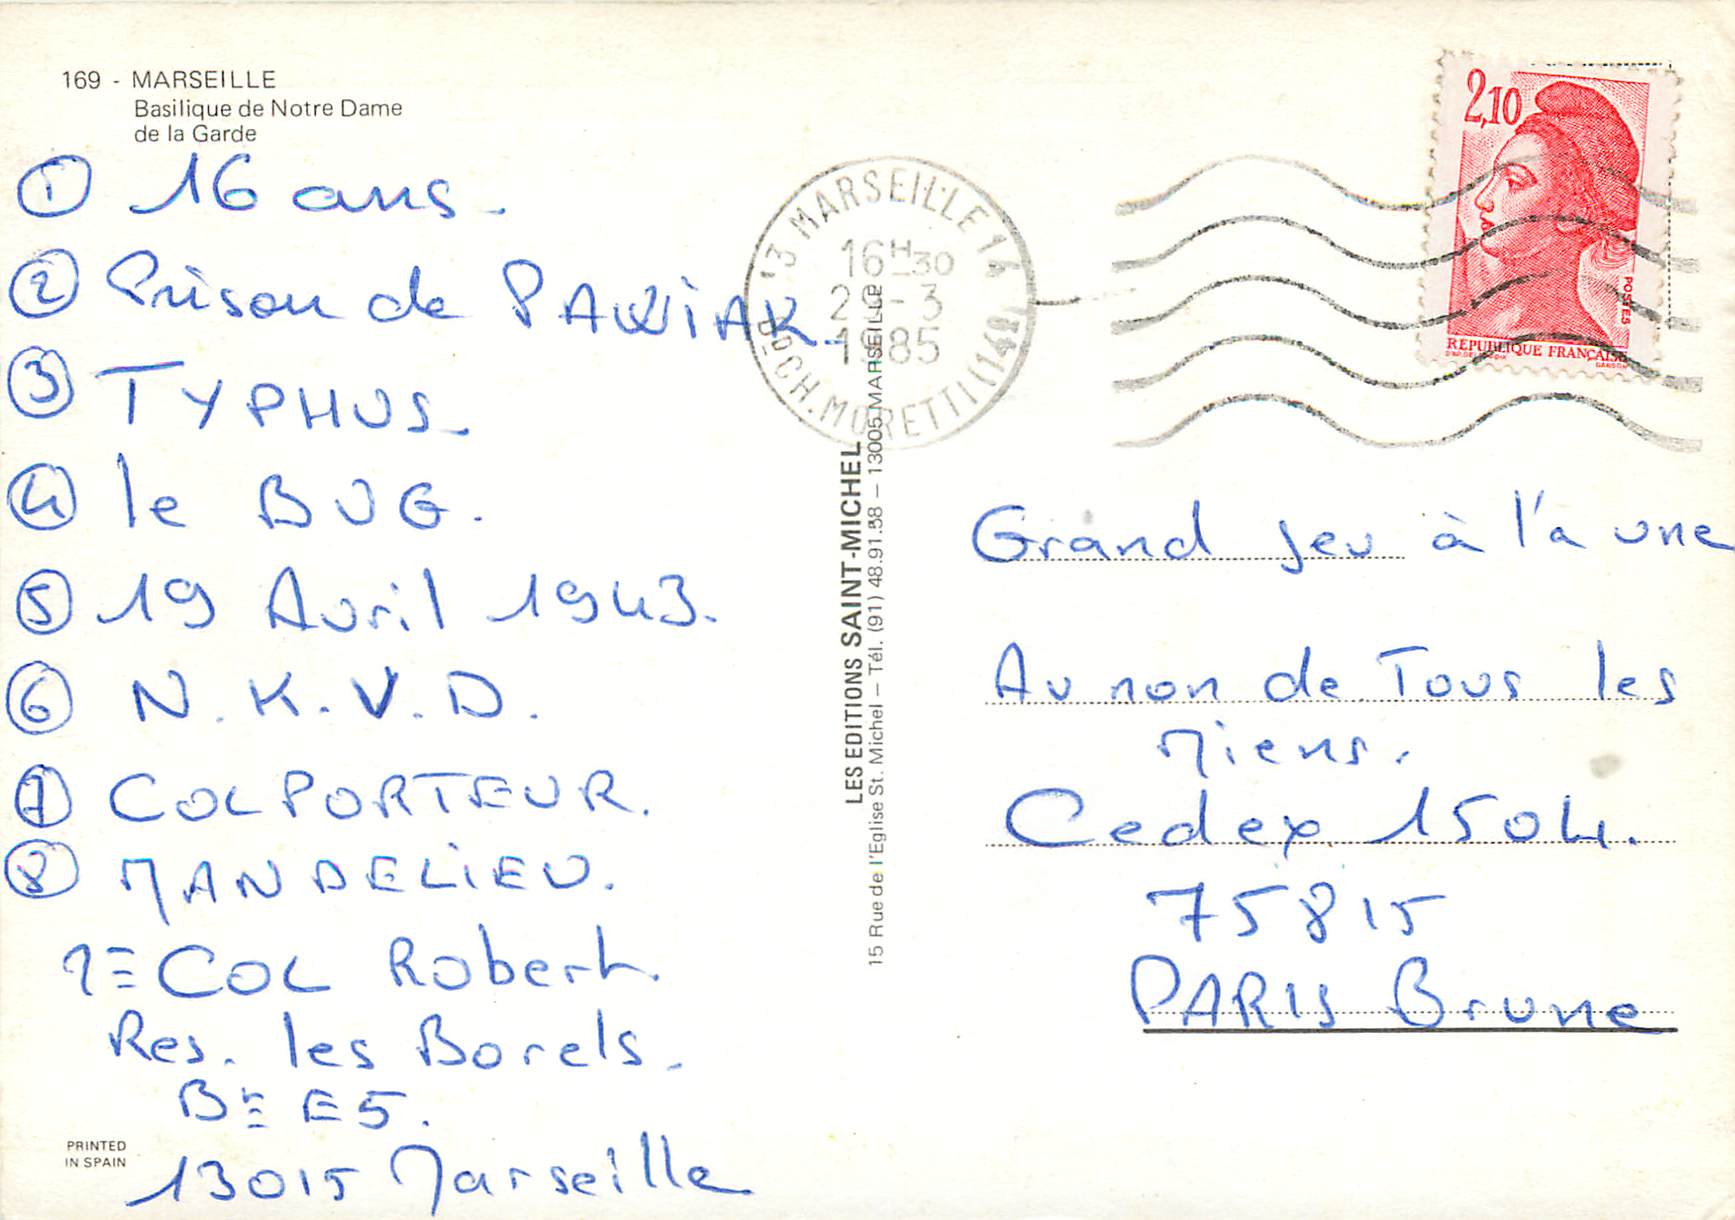 169 - MARSEILLE
Basilique de Notre Dame
de la Garde
① 16 ans.
② Prison de PAWIAK.
③ TYPHUS
④ le BUG.
⑤ 19 Avril 1943.
⑥ N.K.V.D.
⑦ COLPORTEUR.
⑧ MANDELIEU.
COL Robert.
Res. les Borels.
Bt E5.
13015 Marseille
PRINTED
IN SPAIN
LES EDITIONS SAINT-MICHEL
15 Rue de l'Eglise St. Michel – Tél. (91) 48.91.58 – 13005 MARSEILLE
13 MARSEILLE 14
16H30
1985
Bd CH. MORETTI (14e)
2,10
POSTES
REPUBLIQUE FRANÇAISE
GANDON
Grand Jeu à l'a une
Au non de Tous les
Miens.
Cedex 1504.
75815
PARIS Brune